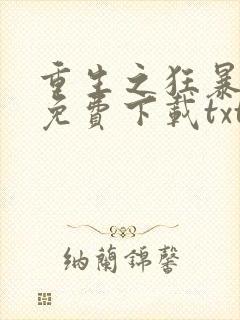 重生之狂暴
免費下載txt
納蘭錦馨